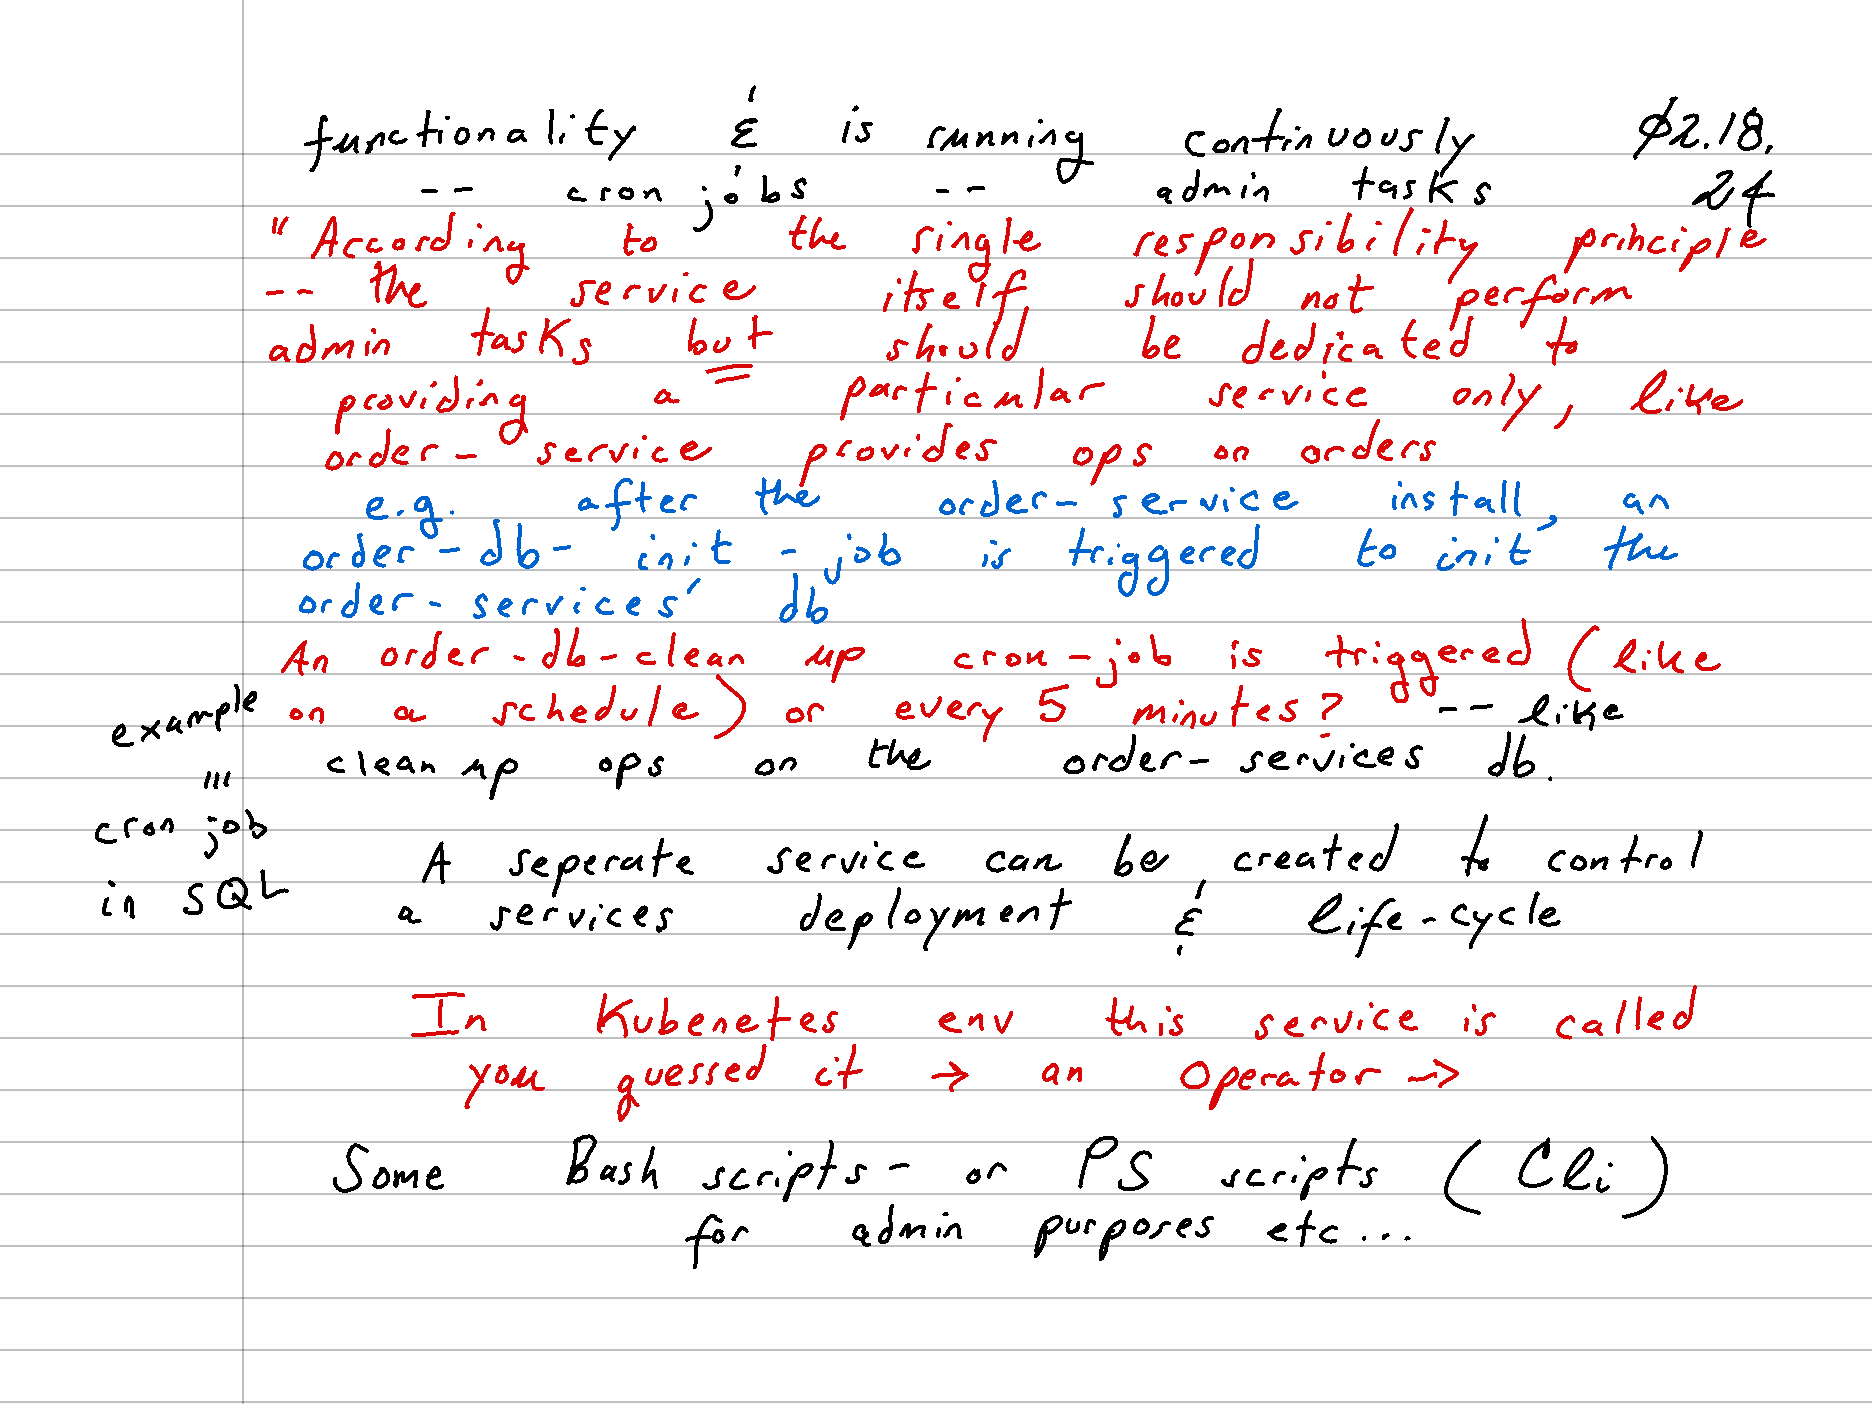 functionality & is running continuously 02.18.
-- cron jobs -- admin tasks 24
"According to the single responsibility principle
-- the service itself should not perform
admin tasks but should be dedicated to
providing a particular service only, like
order-service provides ops on orders
e.g. after the order-service install, an
order-db-init-job is triggered to init the
order-services' db
An order-db-clean up cron-job is triggered (like
on a schedule) or every 5 minutes?" -- like
clean up ops on the order-services db.
example
"'
cron job
in SQL
A seperate service can be created to control
a services deployment & life-cycle
In Kubenetes env this service is called
you guessed it → an Operator →
Some Bash scripts - or PS scripts (Cli)
for admin purposes etc...